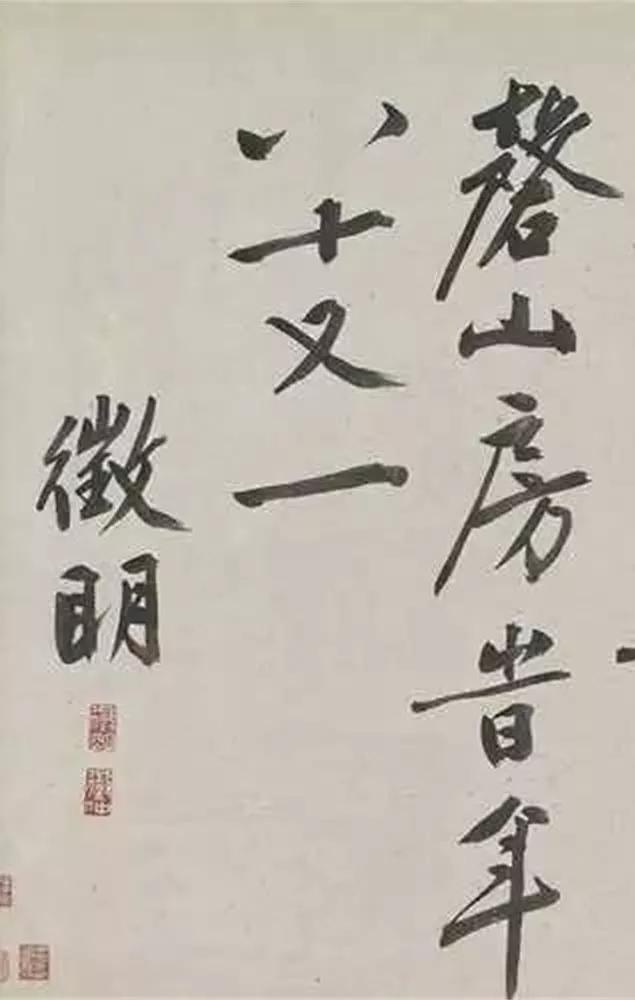 磬山房旹年
八十又一
徵明